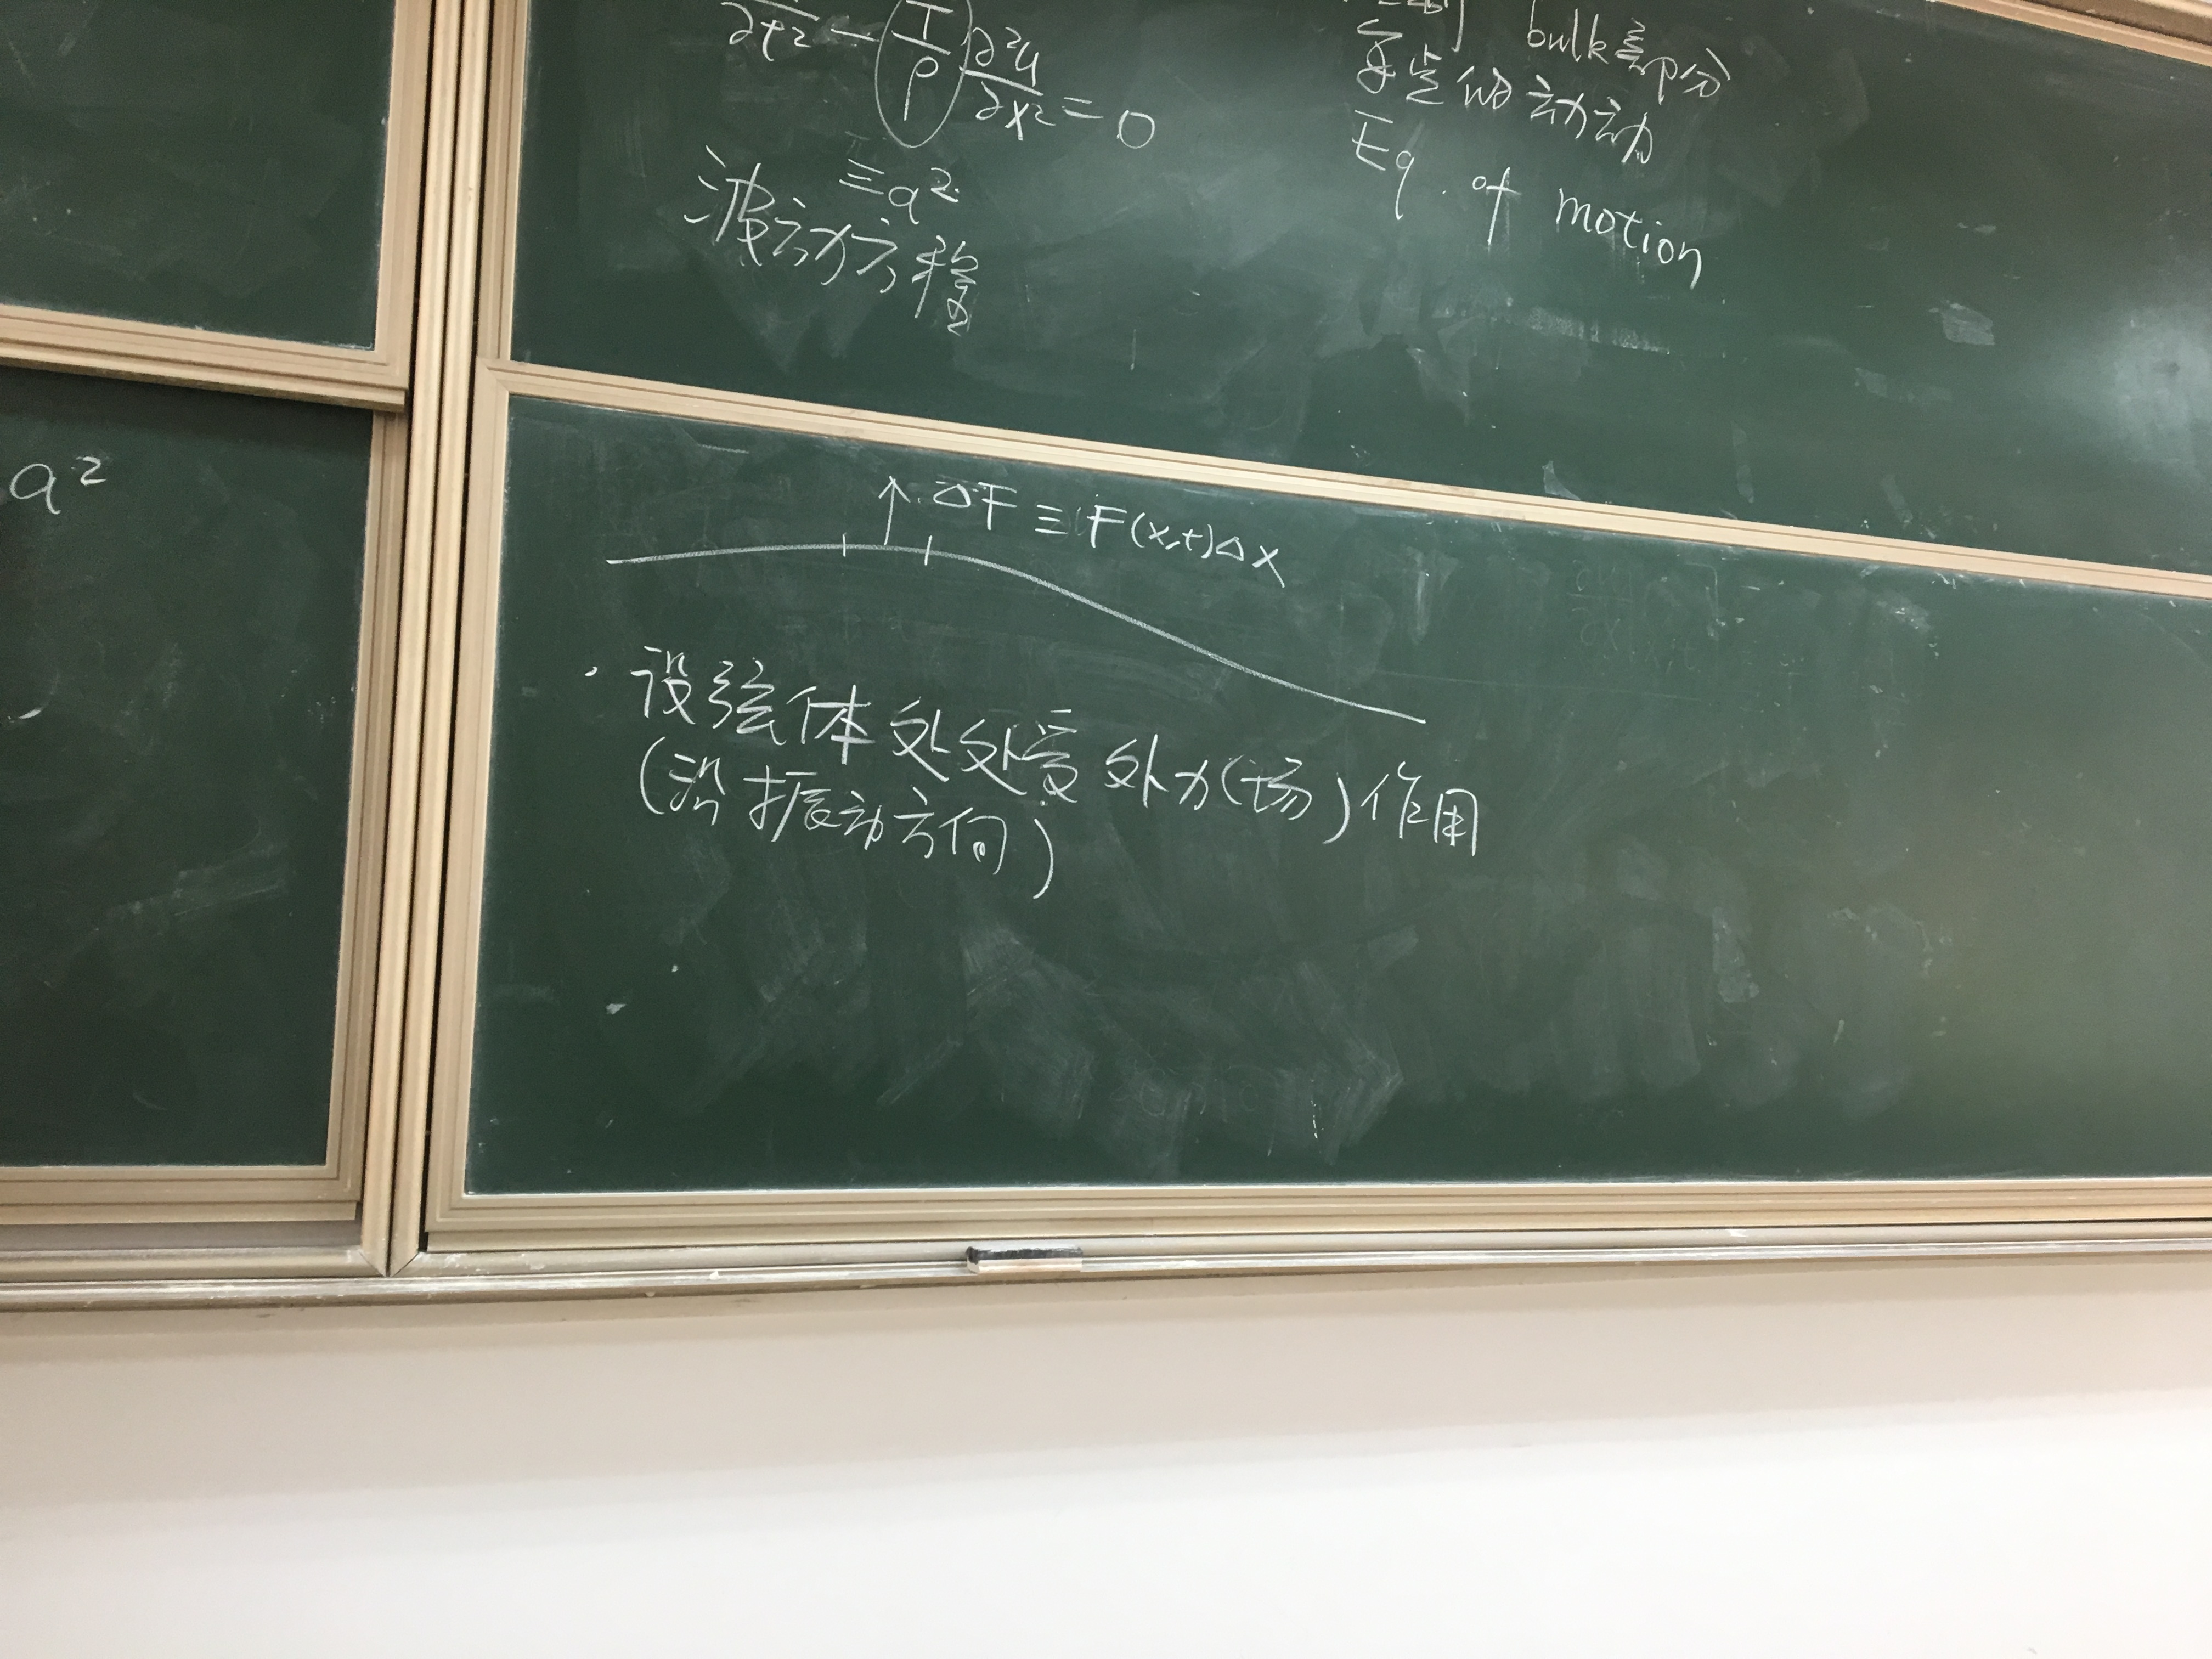 ∂t² − (T/ρ) ∂²u/∂x² = 0
≡ a²
波动方程
bulk部分
每点的运动
Eq. of motion
a²
ΔF ≡ F(x,t)Δx
· 设弦体处处受外力(场)作用
(沿振动方向)